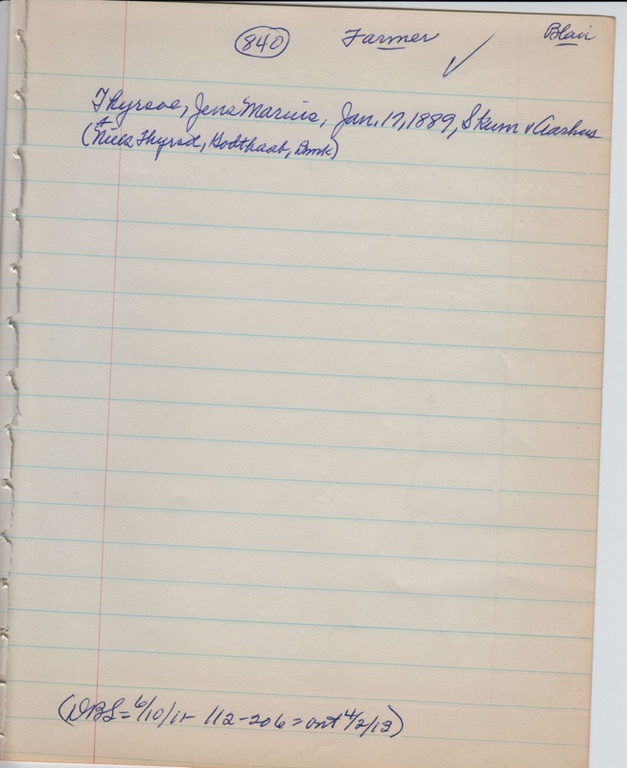 840 Farmer Blair
Thyrsoe, Jens Marius, Jan. 17, 1889, Skum v Aarhus
(Niels Thyrsø, Godthaab, Dmk)
(DBS = 6/10/11 - 112-206 = ont 4/2/13)